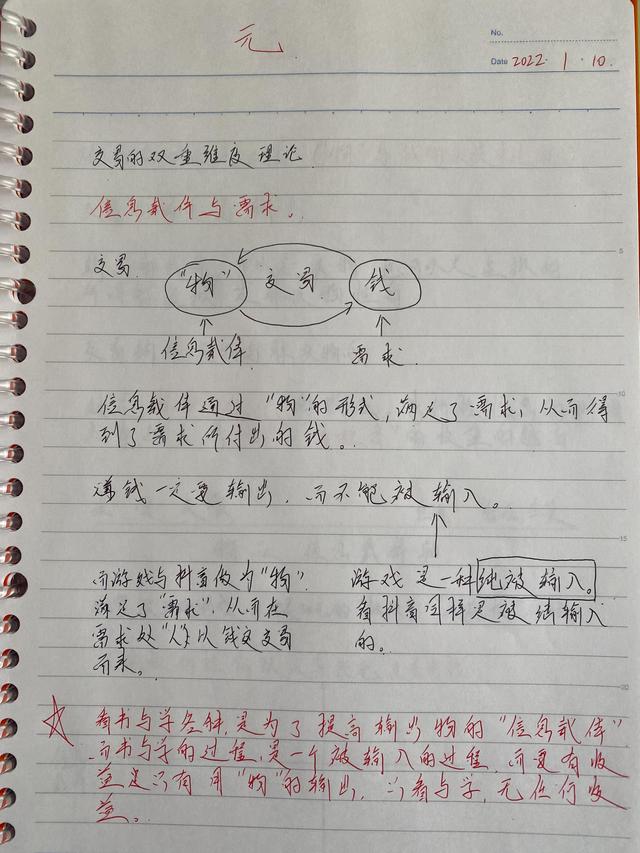 元
No.
Date 2022 · 1 · 10.
交易的双重维度理论
信息载体与需求。
交易
"物" 交易 钱
信息载体 需求.
信息载体通过"物"的形式,满足了需求,从而得
到了需求所付出的钱。
赚钱一定要输出,而不能被输入。
而游戏与抖音做为"物"
满足了"需求",从而在
需求处"人"以钱交交易
而来。
游戏是一种纯被输入。
看抖音同样是被纯输入
的。
看书与学各种,是为了提高输出物的"信息载体"
而书与学的过程,是一个被输入的过程,而要有收
益是只有用"物"的输出,只看与学,无任何收
益。
5
10
15
20